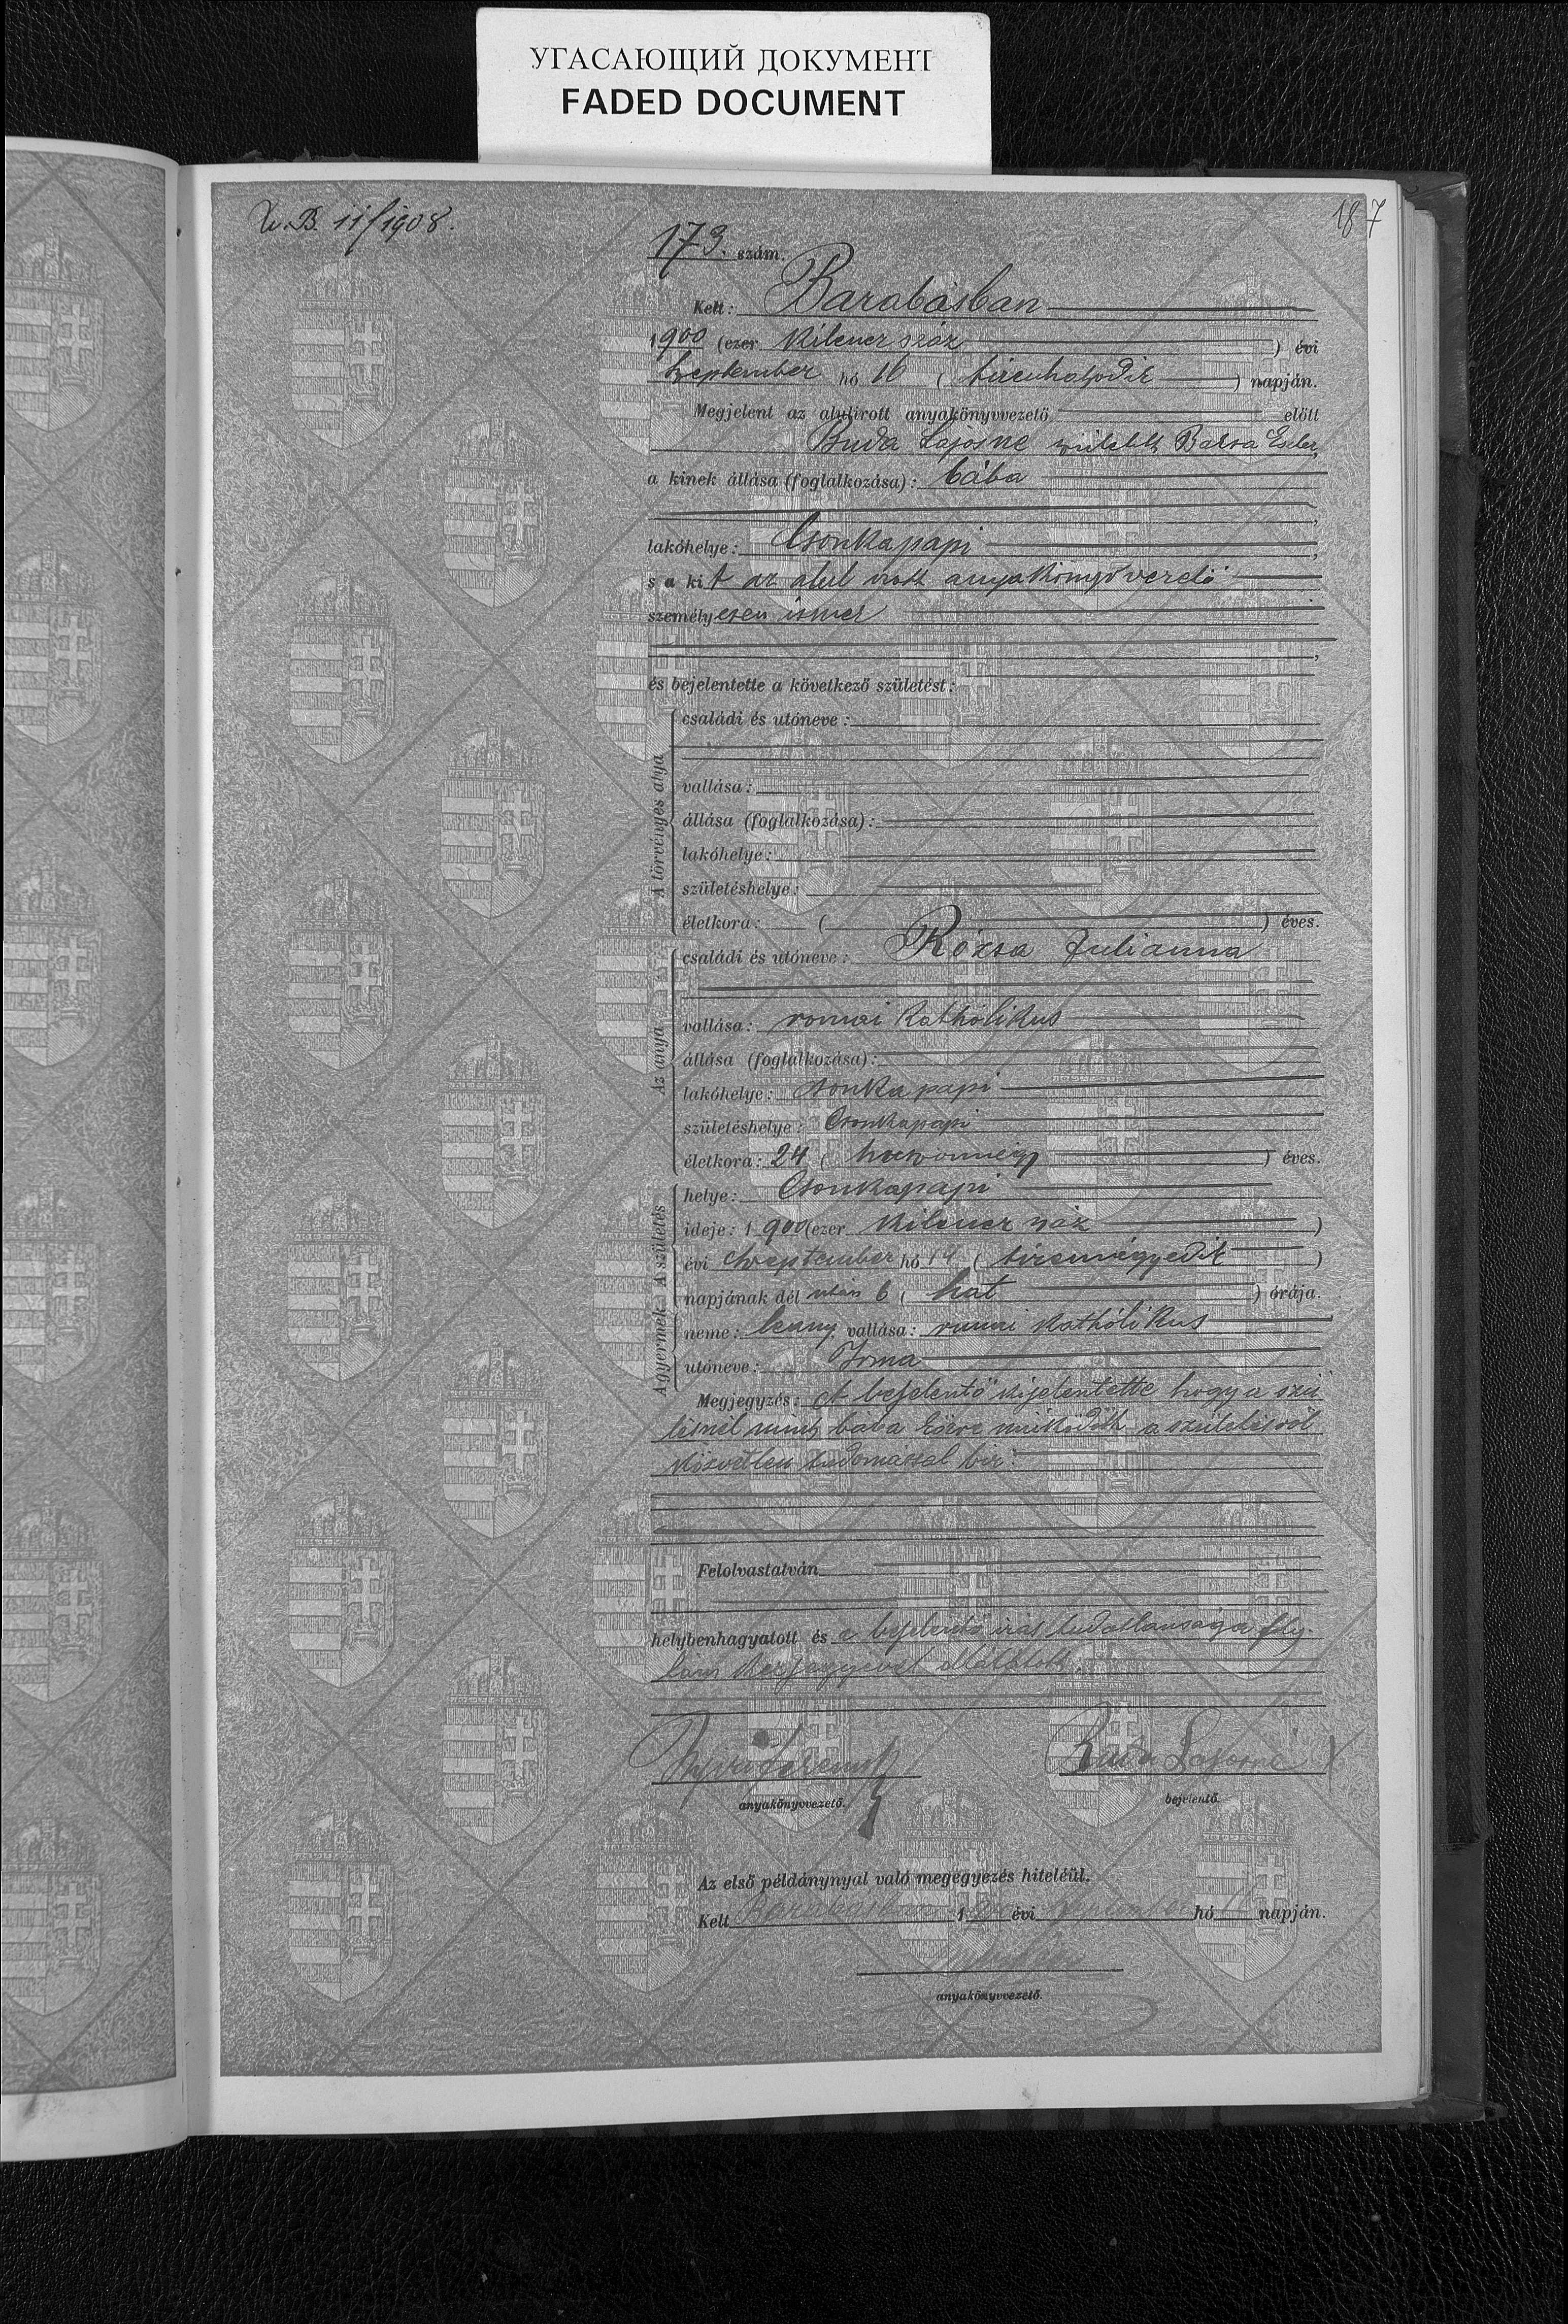 УГАСАЮЩИЙ ДОКУМЕНТ
FADED DOCUMENT
11/1908.
187
173. szám.
Kelt: Barabásban
1900 (ezer kilencz száz) évi
Szeptember hó 16 (tizenhatodik) napján.
Megjelent az alulirott anyakönyvvezető előtt
Buda Lajosné született Eszter,
a kinek állása (foglalkozása): bába
lakóhelye: Csonkapapi,
s a kit az alul irott anyakönyvvezető
személyesen ismer
és bejelentette a következő születést:
A törvényes atya
családi és utóneve:
vallása:
állása (foglalkozása):
lakóhelye:
születéshelye:
életkora: ( ) éves.
Az anya
családi és utóneve: Rózsa Julianna
vallása: romai katholikus
állása (foglalkozása):
lakóhelye: Csonka papi
születéshelye: Csonkapapi
életkora: 24 (huszonnégy) éves.
A születés
helye: Csonkapapi
ideje: 1900 (ezer kilencz száz)
évi Szeptember hó 14 (tizennégyedik)
napjának dél után 6 (hat) órája.
A gyermek
neme: leany vallása: romai katholikus
utóneve: Irma
Megjegyzés: A bejelentő kijelentette hogy a szü
lésnél mint baba működött a születésről
közvetlen tudomással bir.
Felolvastatván
helybenhagyatott és a bejelentő irás tudatlansága foly-
tán kézjegyével elláttatott.
Ferencz
anyakönyvvezető.
Buda Lajosné X
bejelentő.
Az első példánynyal való megegyezés hiteléül.
Kelt Barabásban 1900 évi Szeptember hó 16 napján.
anyakönyvvezető.